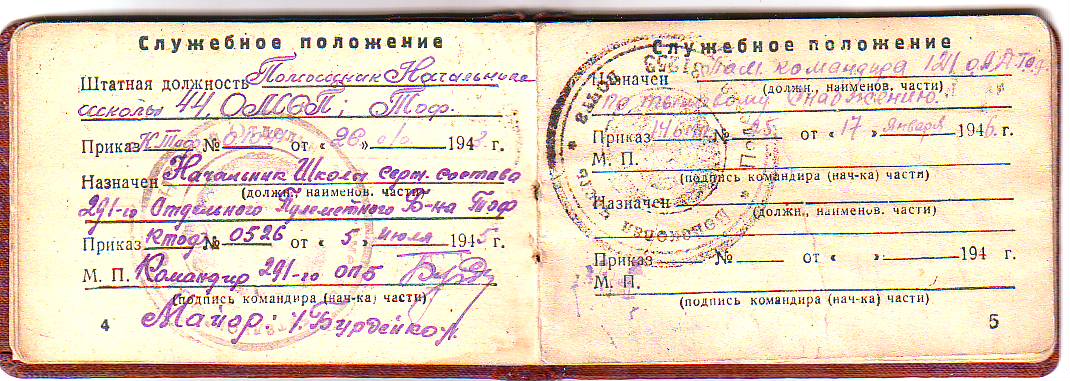 Служебное положение
Штатная должность Помощник Начальника
школы 44, ОМСП; Тоф.
Приказ К.Тоф № от « 28 » 194 г.
Назначен Начальник Школы серж. состава
(должн., наименов. части)
291-го Отдельного Пулеметного Б-на Тоф
Приказ КТОФ № 0526 от « 5 » июля 1945 г.
М. П. Командир 291-го ОПБ
(подпись командира (нач-ка) части)
Майор: /Бурдейко/.
4
Служебное положение
Назначен Пом. командира 121
(должн., наименов. части)
по снабжению.
Приказ № 25 от « 17 » января 1946 г.
М. П.
(подпись командира (нач-ка) части)
Назначен
(должн., наименов. части)
Приказ № от « » 194 г.
М. П.
(подпись командира (нач-ка) части)
5
31253